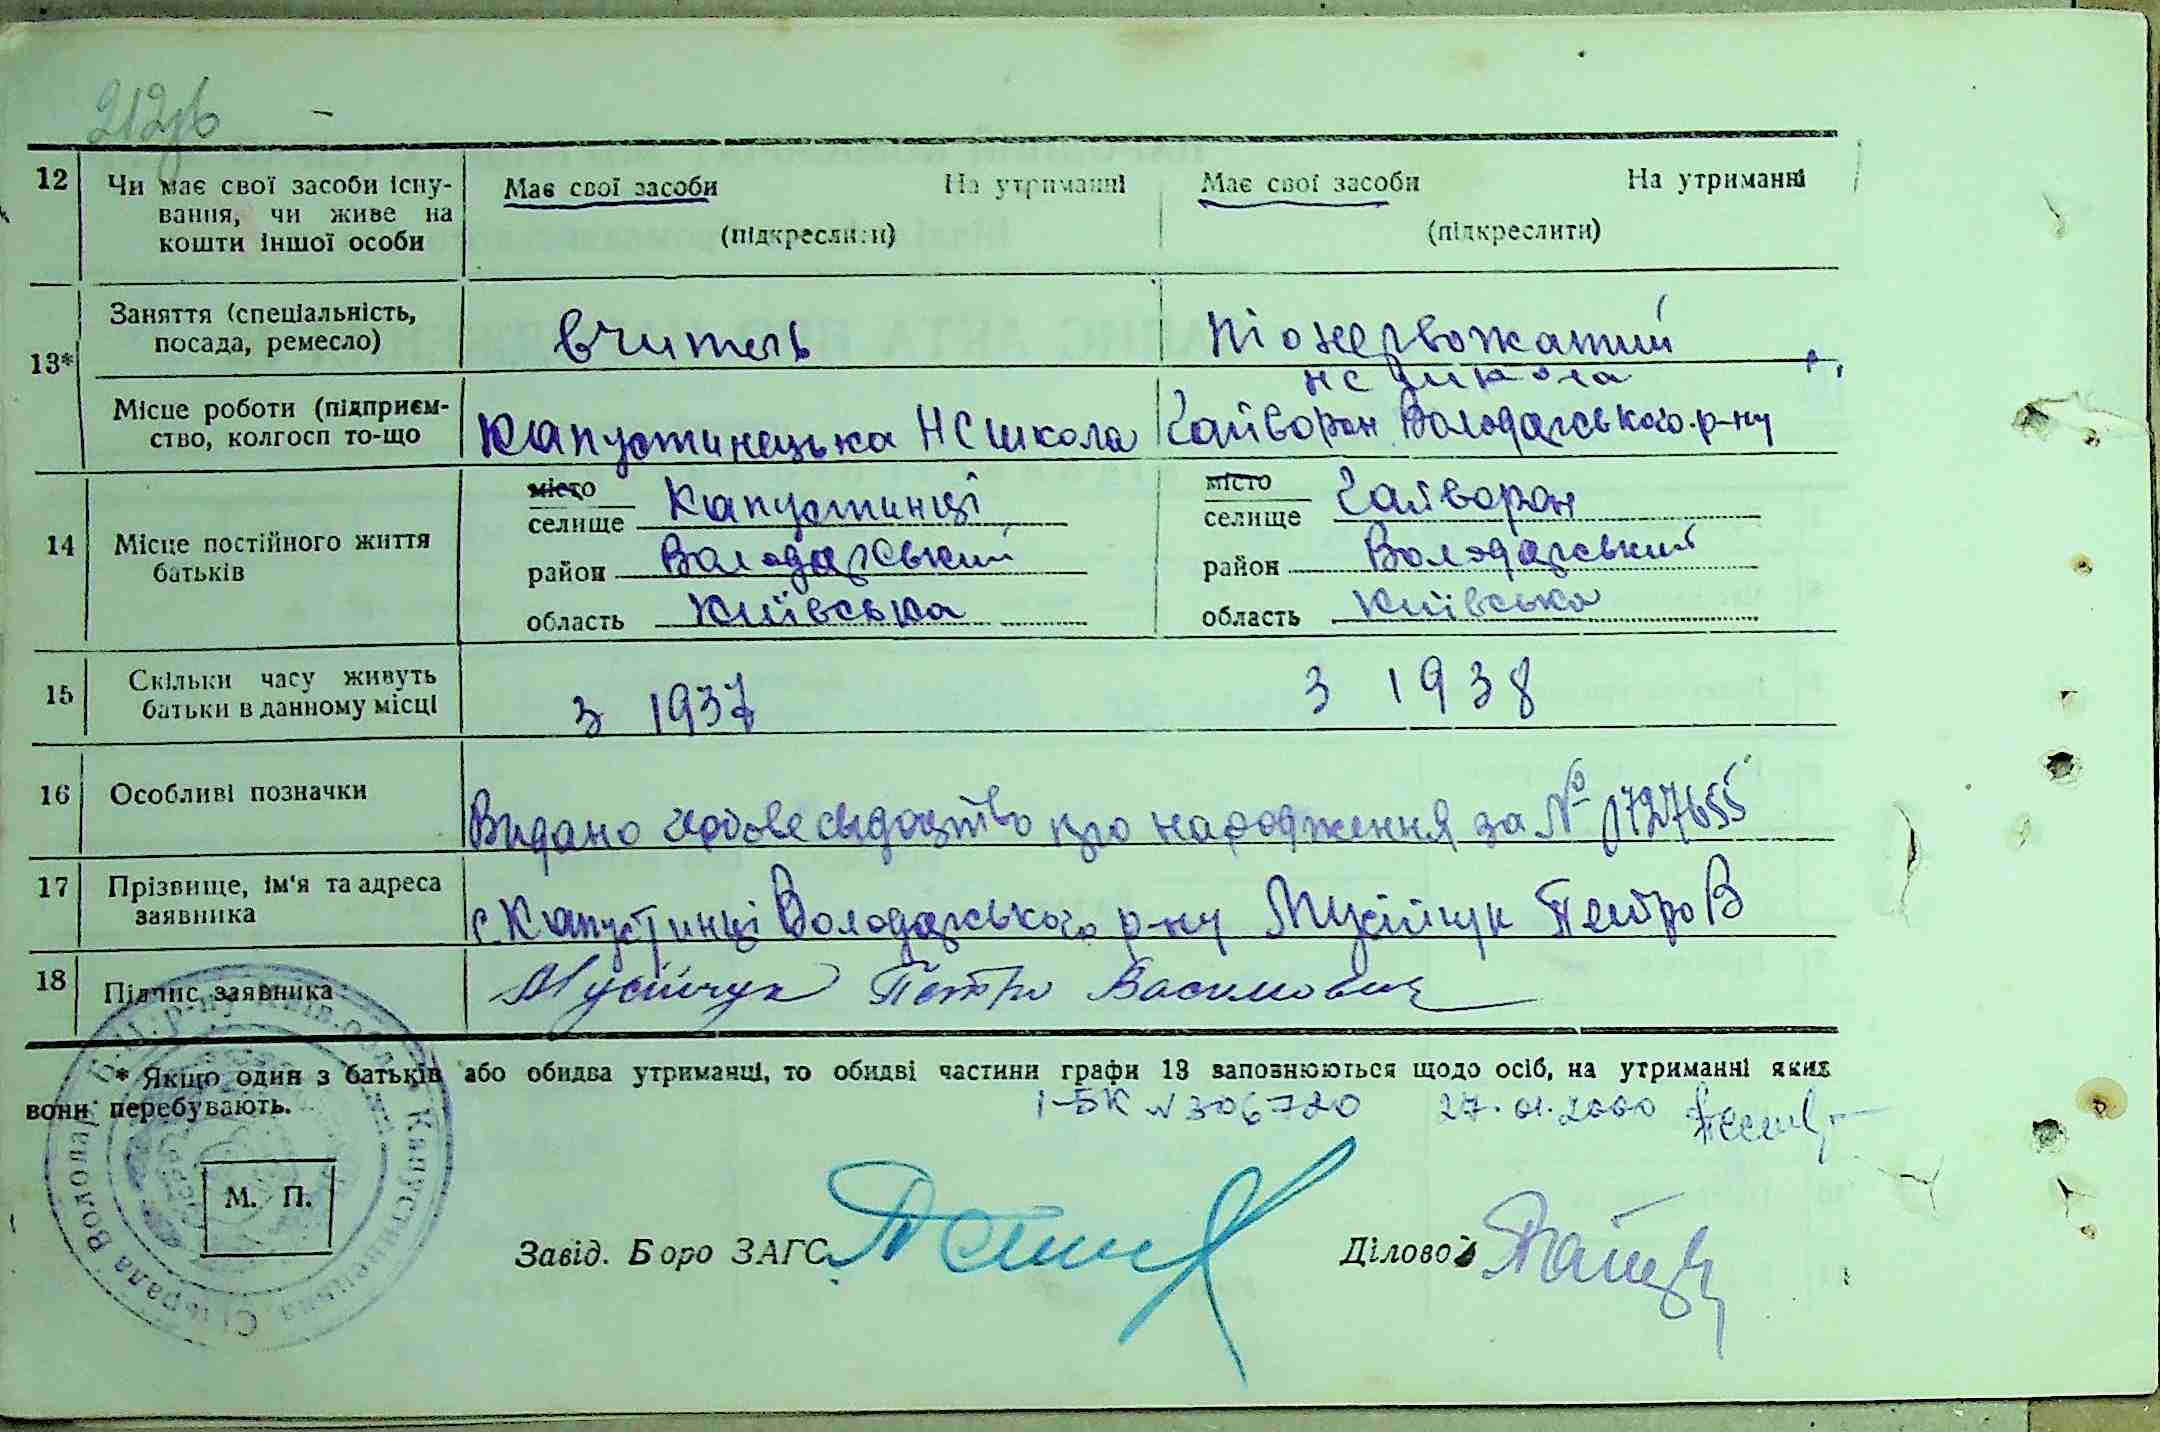 212зв
12 Чи має свої засоби існу- Має свої засоби На утриманні Має свої засоби На утриманні
вання, чи живе на (підкреслити) (підкреслити)
кошти іншої особи
13* Заняття (спеціальність, посада, ремесло) вчитель піонервожатий
нс школа
Місце роботи (підприєм- Капустинецька НСшкола Гайворон Володарського р-ну
ство, колгосп то-що
14 Місце постійного життя батьків
місто місто
селище Капустинці селище Гайворон
район Володарський район Володарський
область Київська область Київська
15 Скільки часу живуть з 1937 з 1938
батьки в данному місці
16 Особливі позначки Видано свідоцтво про народження за № 1727655
17 Прізвище, ім'я та адреса с. Капустинці Володарського р-ну Мусійчук Петро В
заявника
18 Підпис заявника Мусійчук Петро Васильович
* Якщо один з батьків або обидва утриманці, то обидві частини графи 13 заповнюються щодо осіб, на утриманні яких
вони перебувають.
1-БК № 306720 27.01.2000
М. П.
Завід. Бюро ЗАГС Діловод
Капустинецька Сільрада Володар